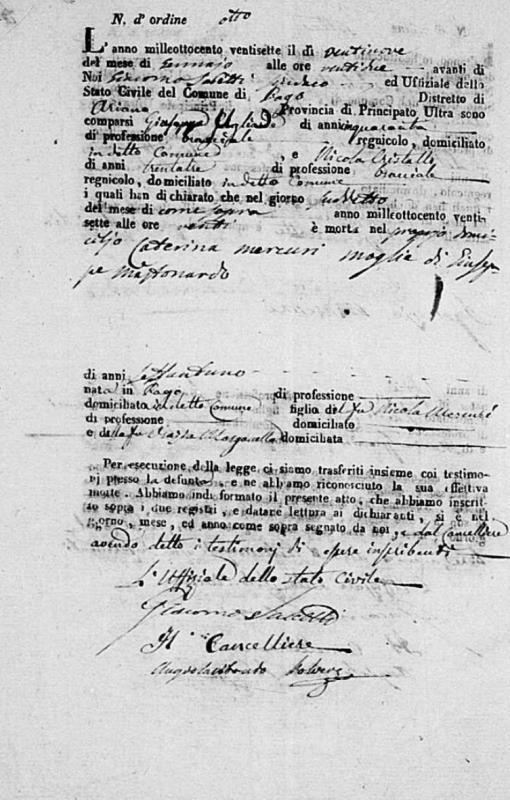 N. d' ordine otto
L' anno milleottocento ventisette il dì ventinove
del mese di Gennajo alle ore ventidue avanti di
Noi Giacomo Sindaco ed Uffiziale dello
Stato Civile del Comune di Pago Distretto di
Ariano Provincia di Principato Ultra sono
comparsi Giuseppe di anni quaranta
di professione bracciale regnicolo, domiciliato
in detto Comune, e Nicola
di anni trentatre di professione bracciale
regnicolo, domiciliato in detto Comune
i quali han dichiarato che nel giorno suddetto
del mese di come sopra anno milleottocento venti-
sette alle ore venti è morta nel proprio domi-
cilio Caterina Mercuri moglie di Giusep-
pe Mastonardo
di anni settantuno
nata in Pago di professione
domiciliata in detto Comune figlia del fu Nicola Mercuri
di professione domiciliato
e della fu domiciliata
Per esecuzione della legge ci siamo trasferiti insieme coi testimo-
nj presso la defunta, e ne abbiamo riconosciuto la sua effettiva
morte. Abbiamo indi formato il presente atto, che abbiamo inscrit-
to sopra i due registri, e datace lettura ai dichiaranti, si è nel
giorno, mese, ed anno come sopra segnato da noi, e dal Cancelliere
avendo detto i testimonj di essere inscribenti
L' Uffiziale dello stato Civile
Giacomo
Il Cancelliere